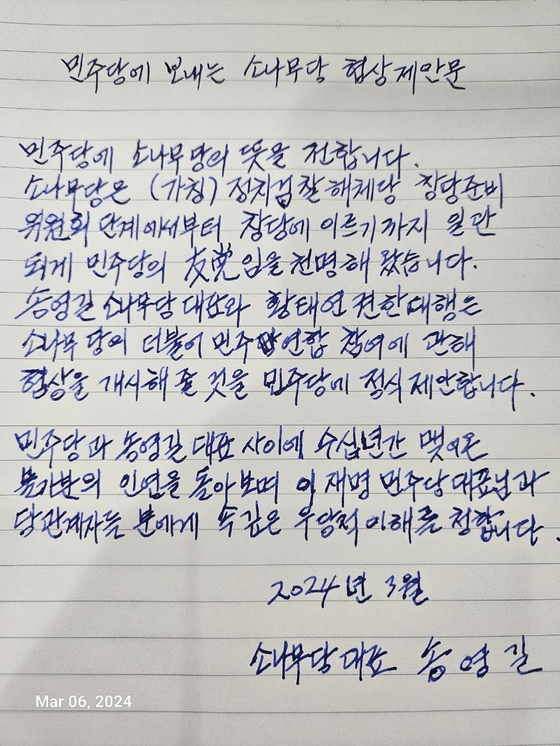 민주당에 보내는 소나무당 협상제안문
민주당에 소나무당의 뜻을 전합니다.
소나무당은 (가칭) 정치검찰해체당 창당준비
위원회 단계에서부터 창당에 이르기까지 일관
되게 민주당의 友党임을 천명해 왔습니다.
송영길 소나무당 대표와 황태연 권한대행은
소나무당의 더불어민주연합 참여에 관해
협상을 개시해 줄 것을 민주당에 정식 제안합니다.
민주당과 송영길 대표 사이에 수십년간 맺어온
불가분의 인연을 돌아보며 이재명 민주당 대표님과
당관계자들 분에게 속 깊은 우당적 이해를 청합니다.
2024년 3월
소나무당 대표 송영길
Mar 06, 2024